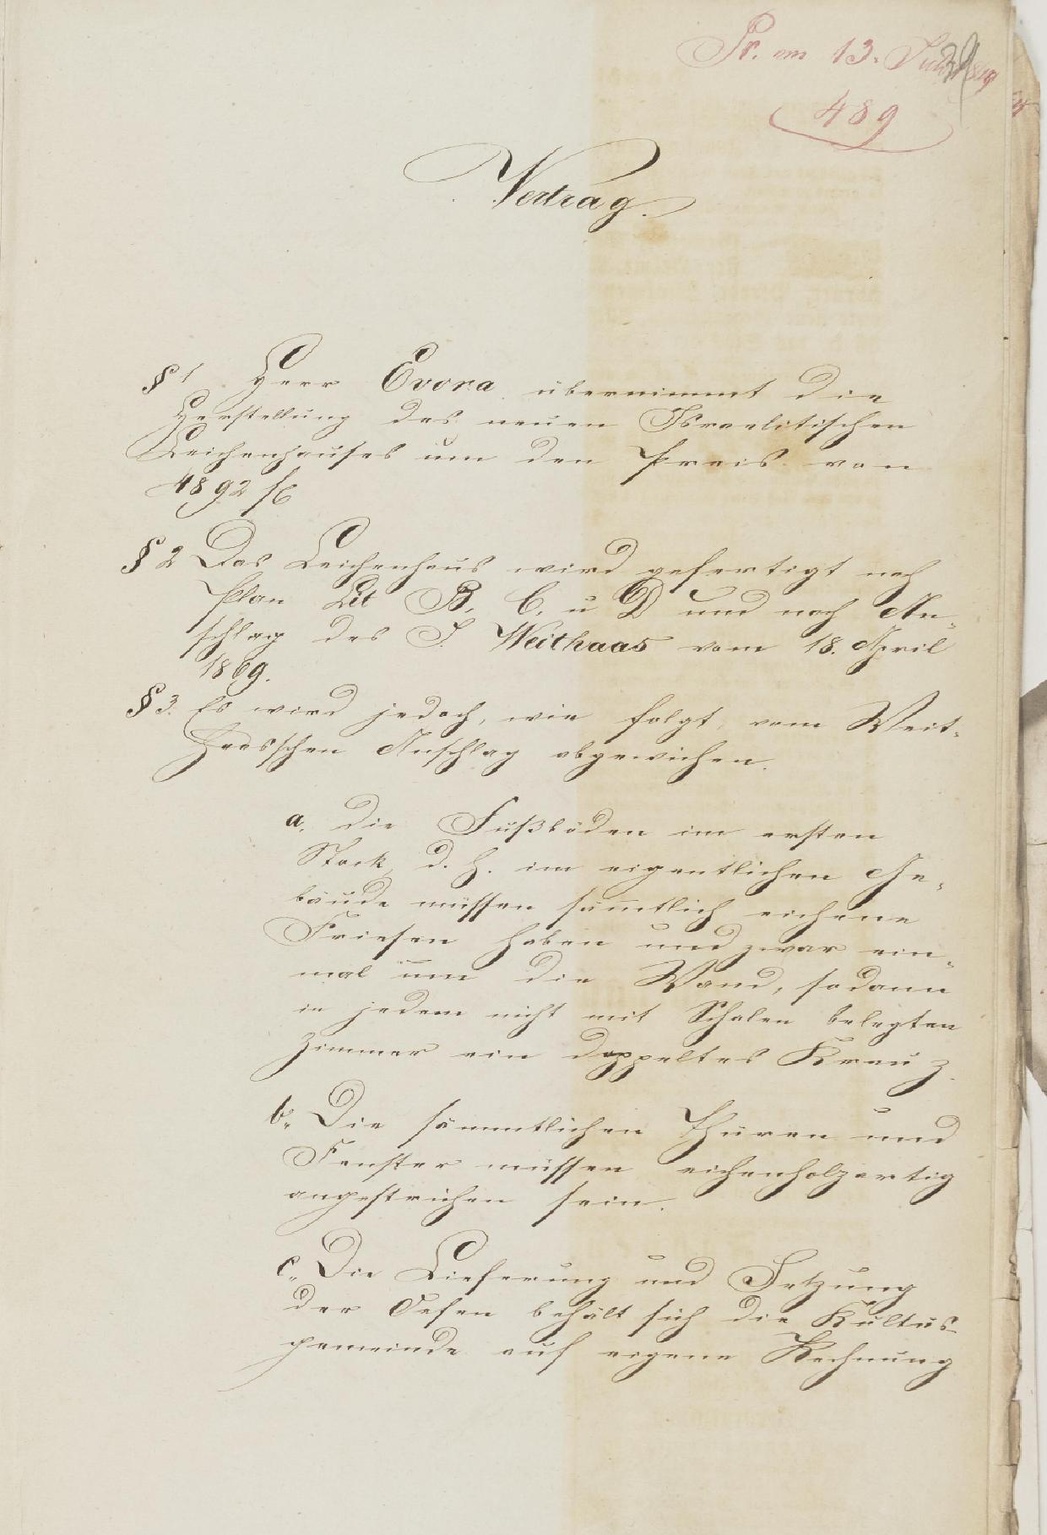 Pr. am 13. Juli 1869
489
Vertrag.
§ 1. Herr Evora übernimmt die
Herstellung des neuen Israelitischen
Leichenhauses um den Preis von
4892 fl
§ 2 Das Leichenhaus wird gefertigt nach
Plan Lit B, C, u D und nach An-
schlag des J. Weithaas vom 18. April
1869.
§ 3. Es wird jedoch, wie folgt, vom Weit-
haasschen Anschlag abgewichen.
a, die Fußböden im ersten
Stock, d. h. im eigentlichen Ge-
bäude müssen sämtlich eichene
Friesen haben und zwar ein-
mal um die Wand, sodann
in jedem nicht mit Schalen belegten
Zimmer ein doppeltes Kreuz.
b, Die sämmtlichen Thüren und
Fenster müssen eichenholzartig
angestrichen sein.
c, Die Lieferung und Setzung
der Oefen behält sich die Kultus-
gemeinde auf eigene Rechnung